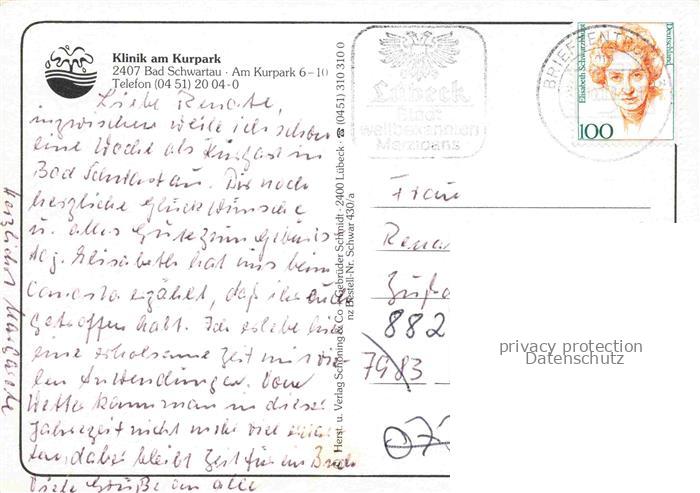 Klinik am Kurpark
2407 Bad Schwartau · Am Kurpark 6–10
Telefon (04 51) 20 04-0
Liebe Renate,
inzwischen weile ich schon
eine Woche als Kurgast in
Bad Schwartau. Dir noch
herzliche Glückwünsche
u. alles Gute zum Geburts-
tag. Elisabeth hat uns beim
Canasta erzählt, daß ihr euch
getroffen habt. Ich erlebe hier
eine erholsame Zeit mit vie-
len Anwendungen. Vom
Wetter kann man in dieser
Jahreszeit nicht mehr viel
ten, dabei bleibt Zeit für ein Buch
Viele Grüße an alle
Herzlichst Margarete
Herst. u. Verlag Schöning & Co + Gebrüder Schmidt · 2400 Lübeck · ☎ (04 51) 310 310 0
nz Bestell-Nr. Schwar 430/a
Lübeck
Stadt
weltbekannten
Marzipans
BRIEFZENTRUM
Elisabeth Schwarzhaupt
Deutschland
100
Frau
Rena
882
7983
07
privacy protection
Datenschutz